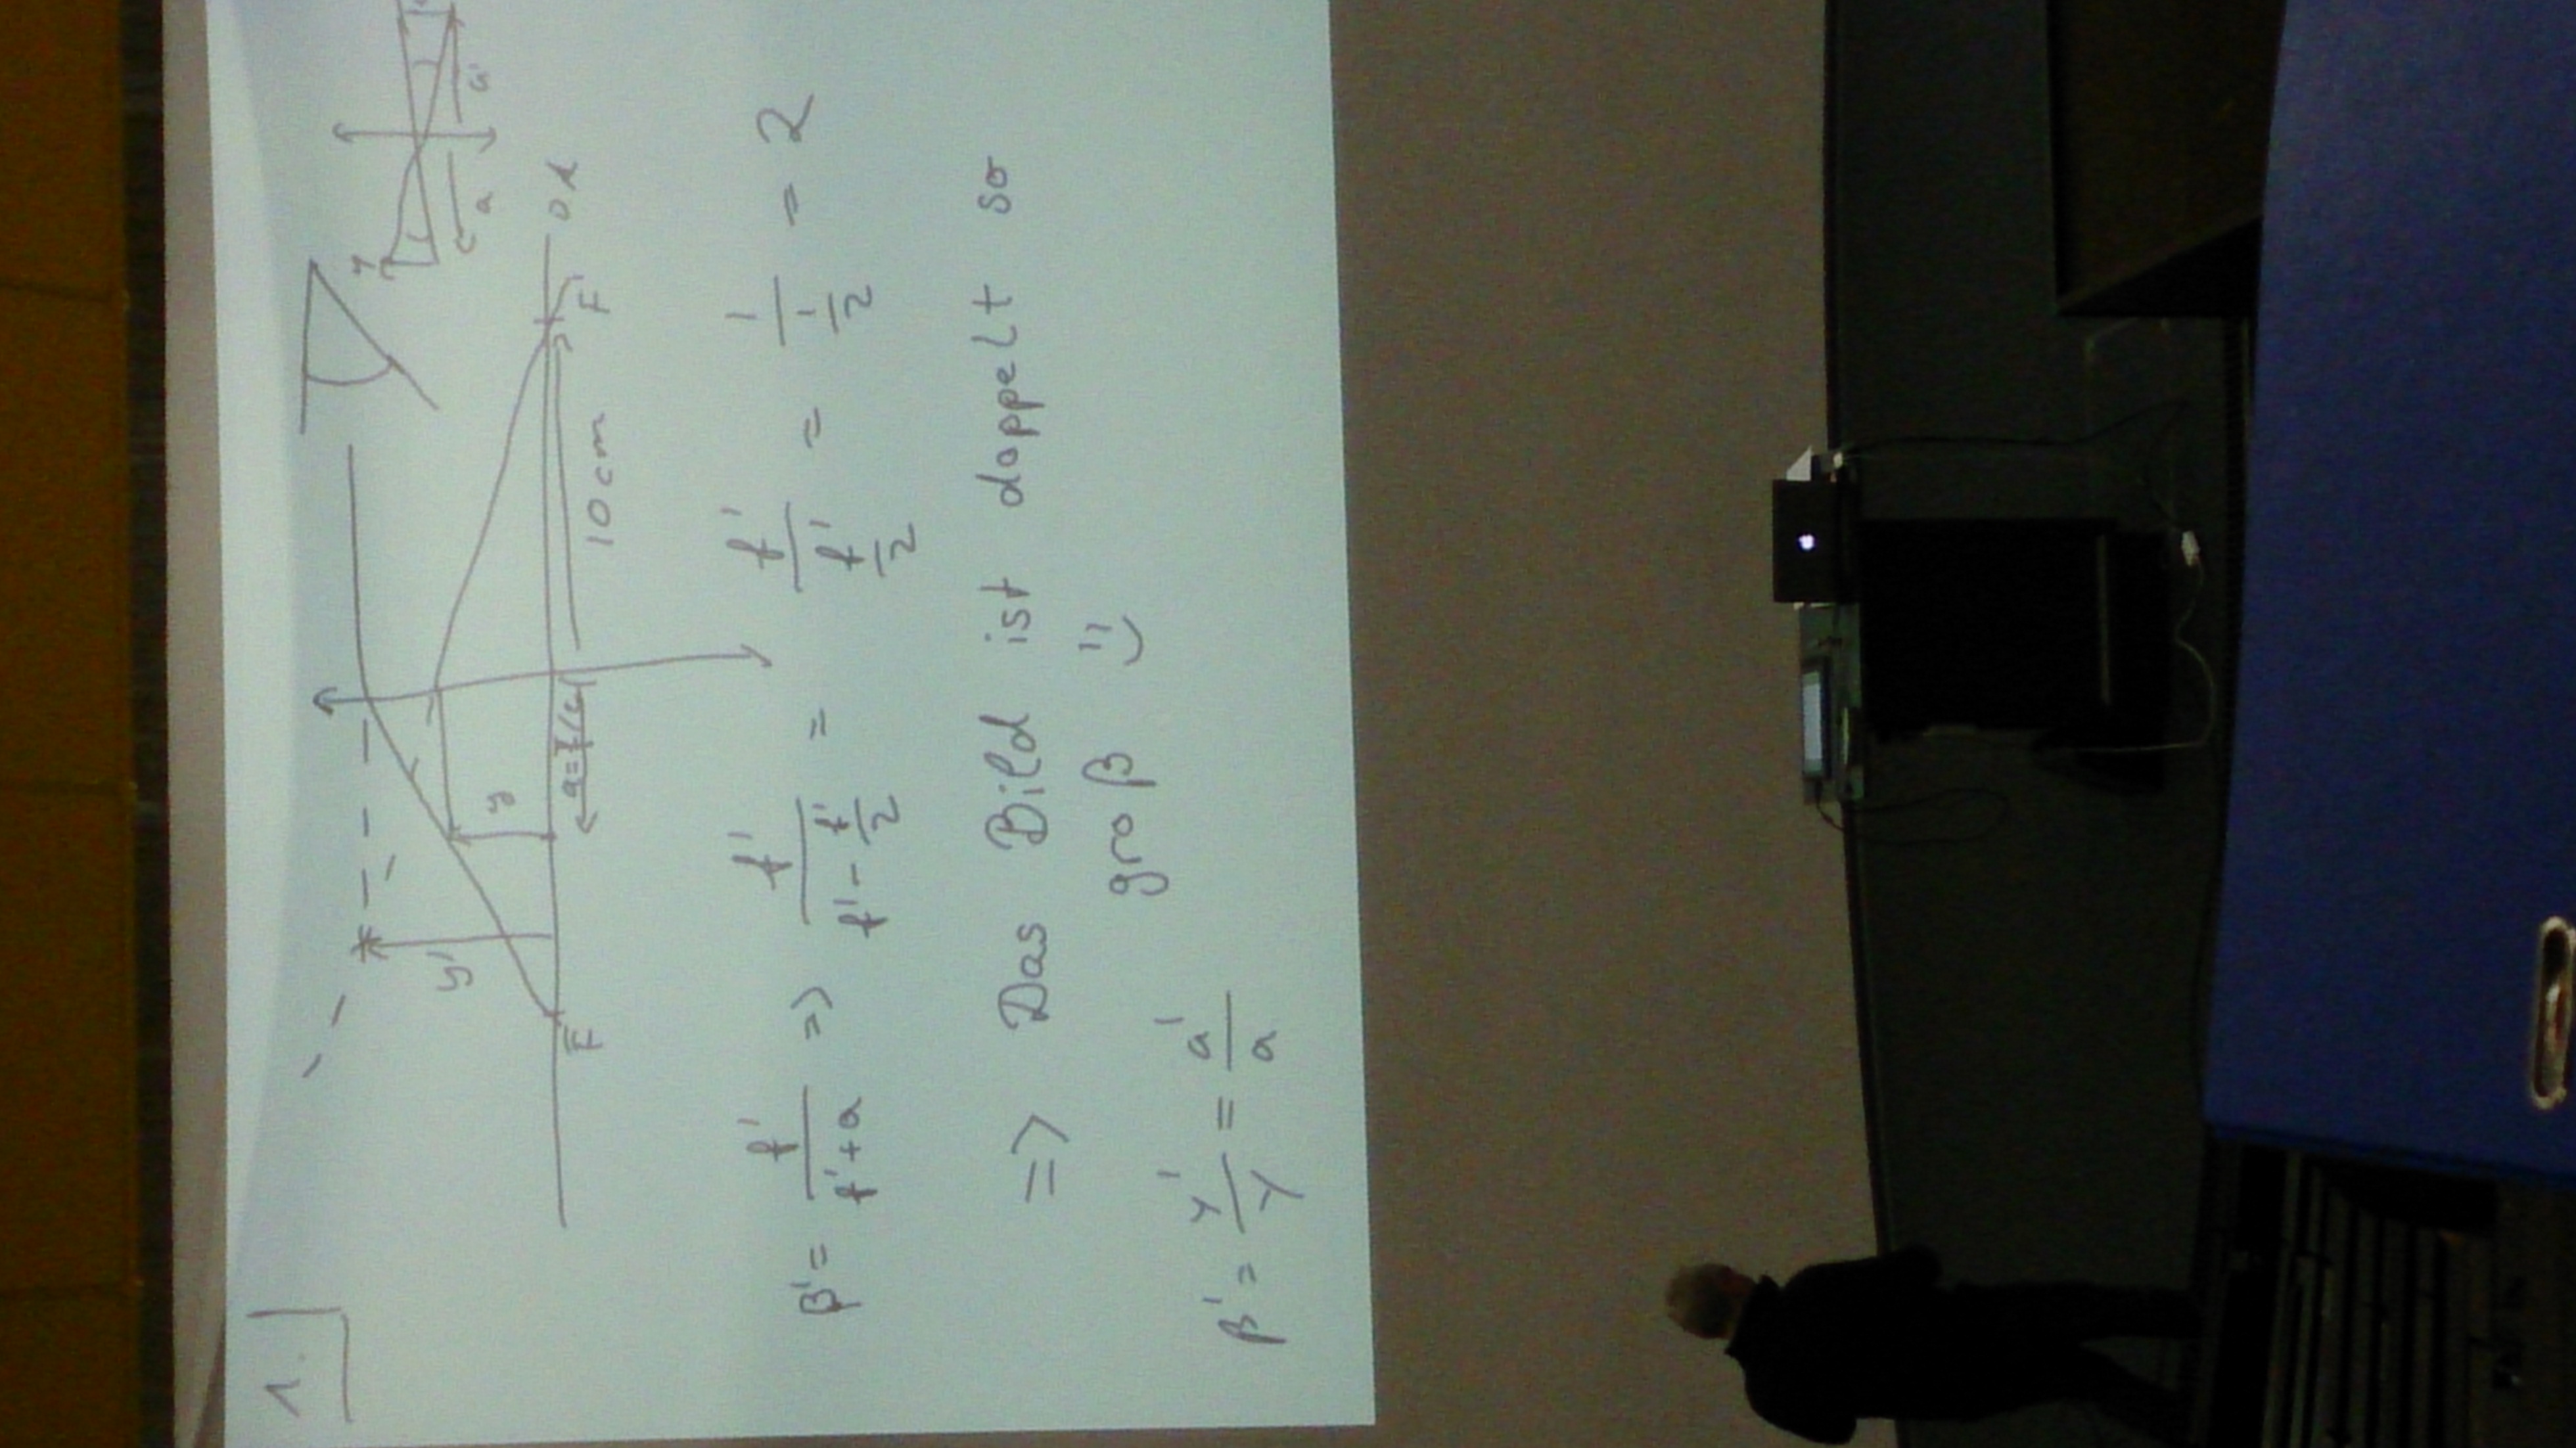 1.
y
a
a'
y'
y
F̄
10 cm
F'
OA
β' = f'/(f'+a) => f'/(f' - f'/2) = f'/(f'/2) = 1/(1/2) = 2
=> Das Bild ist doppelt so
groß
β' = y'/y = a'/a